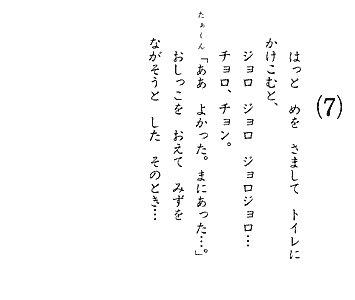 (7)
はっと めを さまして トイレに
かけこむと、
ジョロ ジョロ ジョロジョロ…
チョロ、チョン。
たぁくん「ああ よかった。まにあった…。」
おしっこを おえて みずを
ながそうと した そのとき…